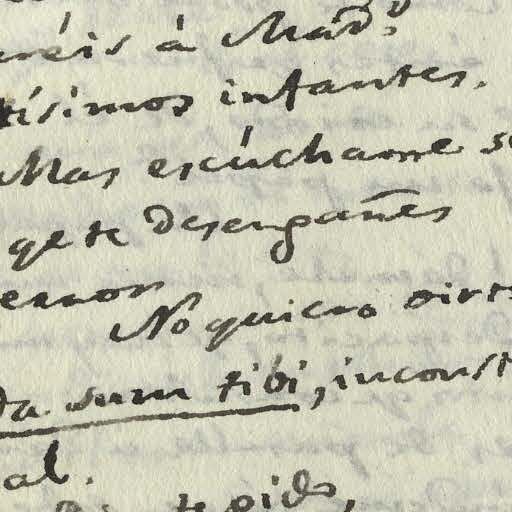 réis á Madᵈ.
tísimos infantes.
Mas escúchame s
qᵉ te desengañes
error
No quiero oirt
da sum tibi, inconst
al.
te pido,